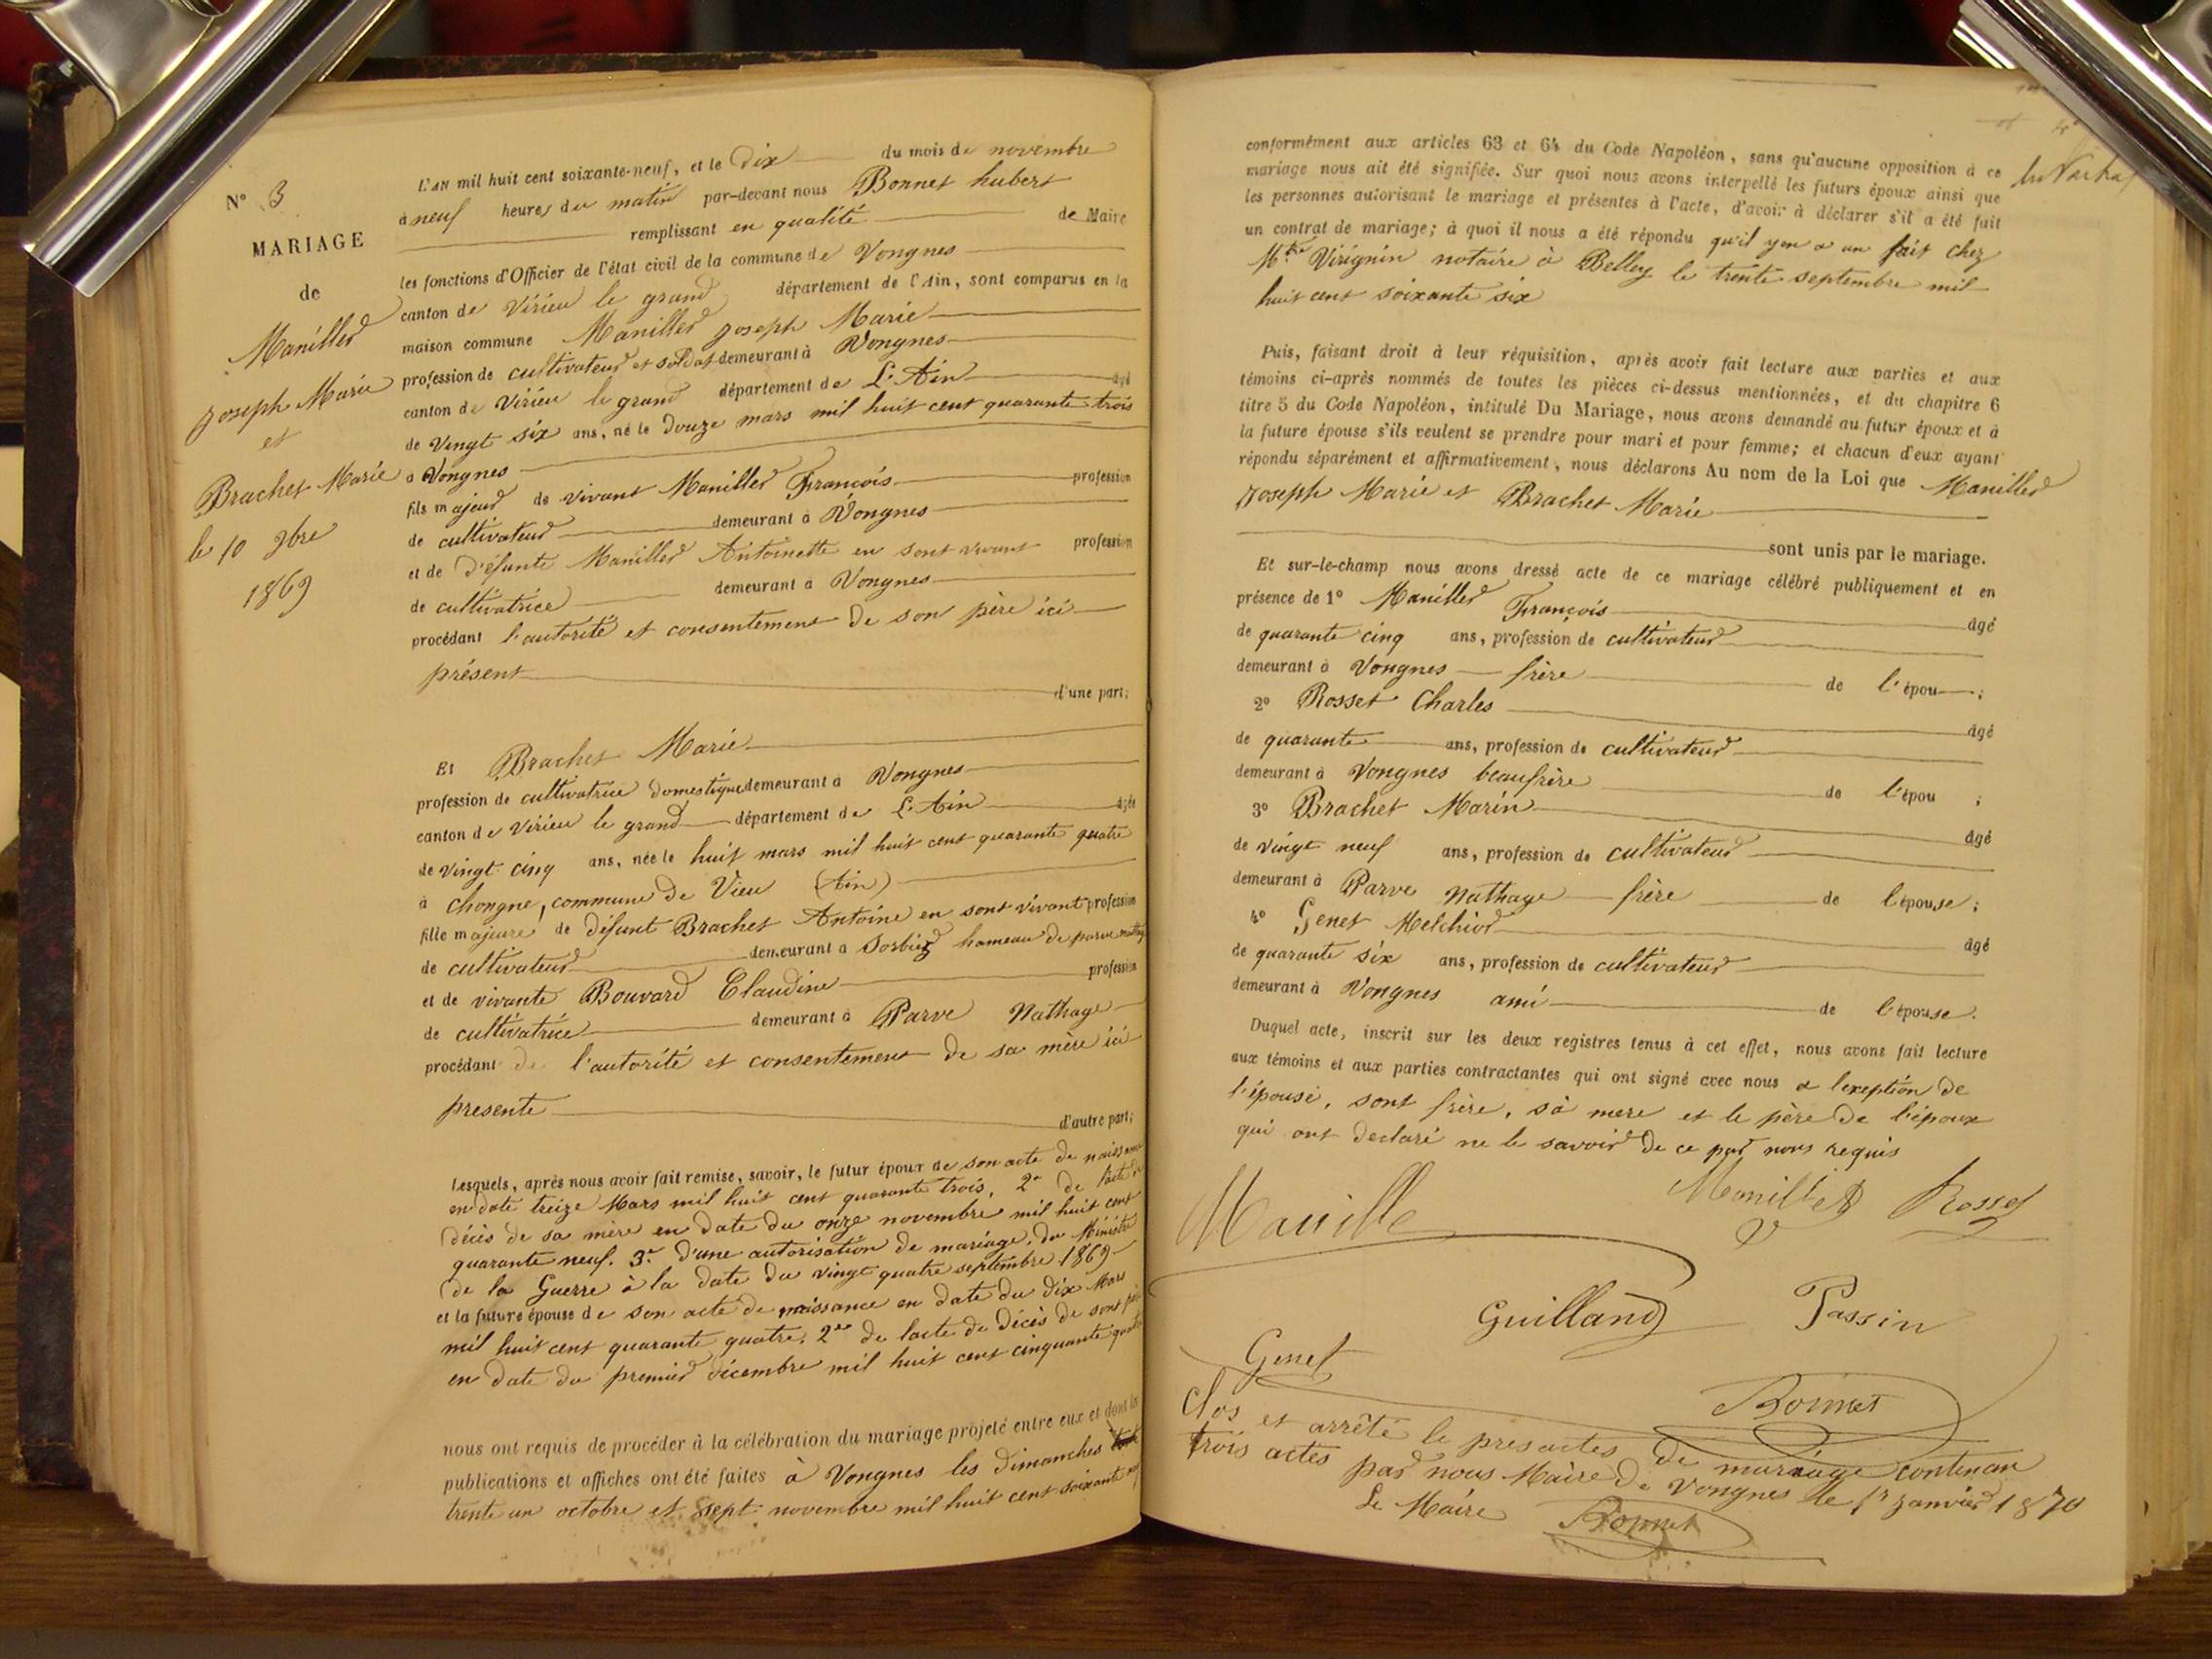 N° 3
MARIAGE
de
Maniller
Joseph Marie
et
Brachet Marie
le 10 9bre
1869
L'AN mil huit cent soixante-neuf, et le dix du mois de novembre
à neuf heures du matin par-devant nous Bonnet hubert
remplissant en qualité de Maire
les fonctions d'Officier de l'état civil de la commune de Vongnes
canton de Virieu le grand département de l'Ain, sont comparus en la
maison commune Maniller Joseph Marie
profession de cultivateur et soldat demeurant à Vongnes
canton de Virieu le grand département de L'Ain âgé
de vingt six ans, né le douze mars mil huit cent quarante trois
à Vongnes
fils majeur de vivant Maniller François profession
de cultivateur demeurant à Vongnes
et de défunte Maniller Antoinette en sont vivant profession
de cultivatrice demeurant à Vongnes
procédant l'autorité et consentement de son père ici
présent d'une part;
Et Brachet Marie
profession de cultivatrice domestique demeurant à Vongnes
canton de Virieu le grand département de L'Ain âgée
de vingt cinq ans, née le huit mars mil huit cent quarante quatre
à Chongne, commune de Vieu (Ain)
fille majeure de défunt Brachet Antoine en sont vivant profession
de cultivateur demeurant à Sorbier hameau de parve
et de vivante Bouvard Claudine profession
de cultivatrice demeurant à Parve Nathage
procédant de l'autorité et consentement de sa mère ici
presente d'autre part;
Lesquels, après nous avoir fait remise, savoir, le futur époux de son acte de naissance
en date treize Mars mil huit cent quarante trois, 2° de l'acte de
décès de sa mère en date du onze novembre mil huit cent
quarante neuf. 3° d'une autorisation de mariage, du Ministre
de la Guerre à la date du vingt quatre septembre 1869
et la future épouse de son acte de naissance en date du dix Mars
mil huit cent quarante quatre, 2° de lacte de décès de sont père
en date du premier décembre mil huit cent cinquante quatre
nous ont requis de procéder à la célébration du mariage projeté entre eux et dont les
publications et affiches ont été faites à Vongnes les dimanches
trente un octobre et sept novembre mil huit cent soixante neuf
conformément aux articles 63 et 64 du Code Napoléon, sans qu'aucune opposition à ce
mariage nous ait été signifiée. Sur quoi nous avons interpellé les futurs époux ainsi que
les personnes autorisant le mariage et présentes à l'acte, d'avoir à déclarer s'il a été fait
un contrat de mariage; à quoi il nous a été répondu qu'il y en a un fait chez
Mtre Virignin notaire à Belley le trente septembre mil
huit cent soixante six
Puis, faisant droit à leur réquisition, après avoir fait lecture aux parties et aux
témoins ci-après nommés de toutes les pièces ci-dessus mentionnées, et du chapitre 6
titre 5 du Code Napoléon, intitulé Du Mariage, nous avons demandé au futur époux et à
la future épouse s'ils veulent se prendre pour mari et pour femme; et chacun d'eux ayant
répondu séparément et affirmativement, nous déclarons Au nom de la Loi que Maniller
Joseph Marie et Brachet Marie
sont unis par le mariage.
Et sur-le-champ nous avons dressé acte de ce mariage célébré publiquement et en
présence de 1° Maniller François âgé
de quarante cinq ans, profession de cultivateur
demeurant à Vongnes frère de l'épou ;
2° Rosset Charles âgé
de quarante ans, profession de cultivateur
demeurant à Vongnes beaufrère de l'épou ;
3° Brachet Marin âgé
de vingt neuf ans, profession de cultivateur
demeurant à Parve Nathage frère de l'épouse;
4° Genet Melchior âgé
de quarante six ans, profession de cultivateur
demeurant à Vongnes ami de l'épouse.
Duquel acte, inscrit sur les deux registres tenus à cet effet, nous avons fait lecture
aux témoins et aux parties contractantes qui ont signé avec nous a lexeption de
l'épouse, sont frère, sà mere et le père de l'époux
qui ont declaré ne le savoir de ce par nous requis
Manille Maniller Rosset
Guilland Passin
Genet Bonnet
Clos et arrêté le pres actes de mariage contenan
trois actes par nous Maire de Vongnes le 1r janvier 1870
Le Maire Bonnet